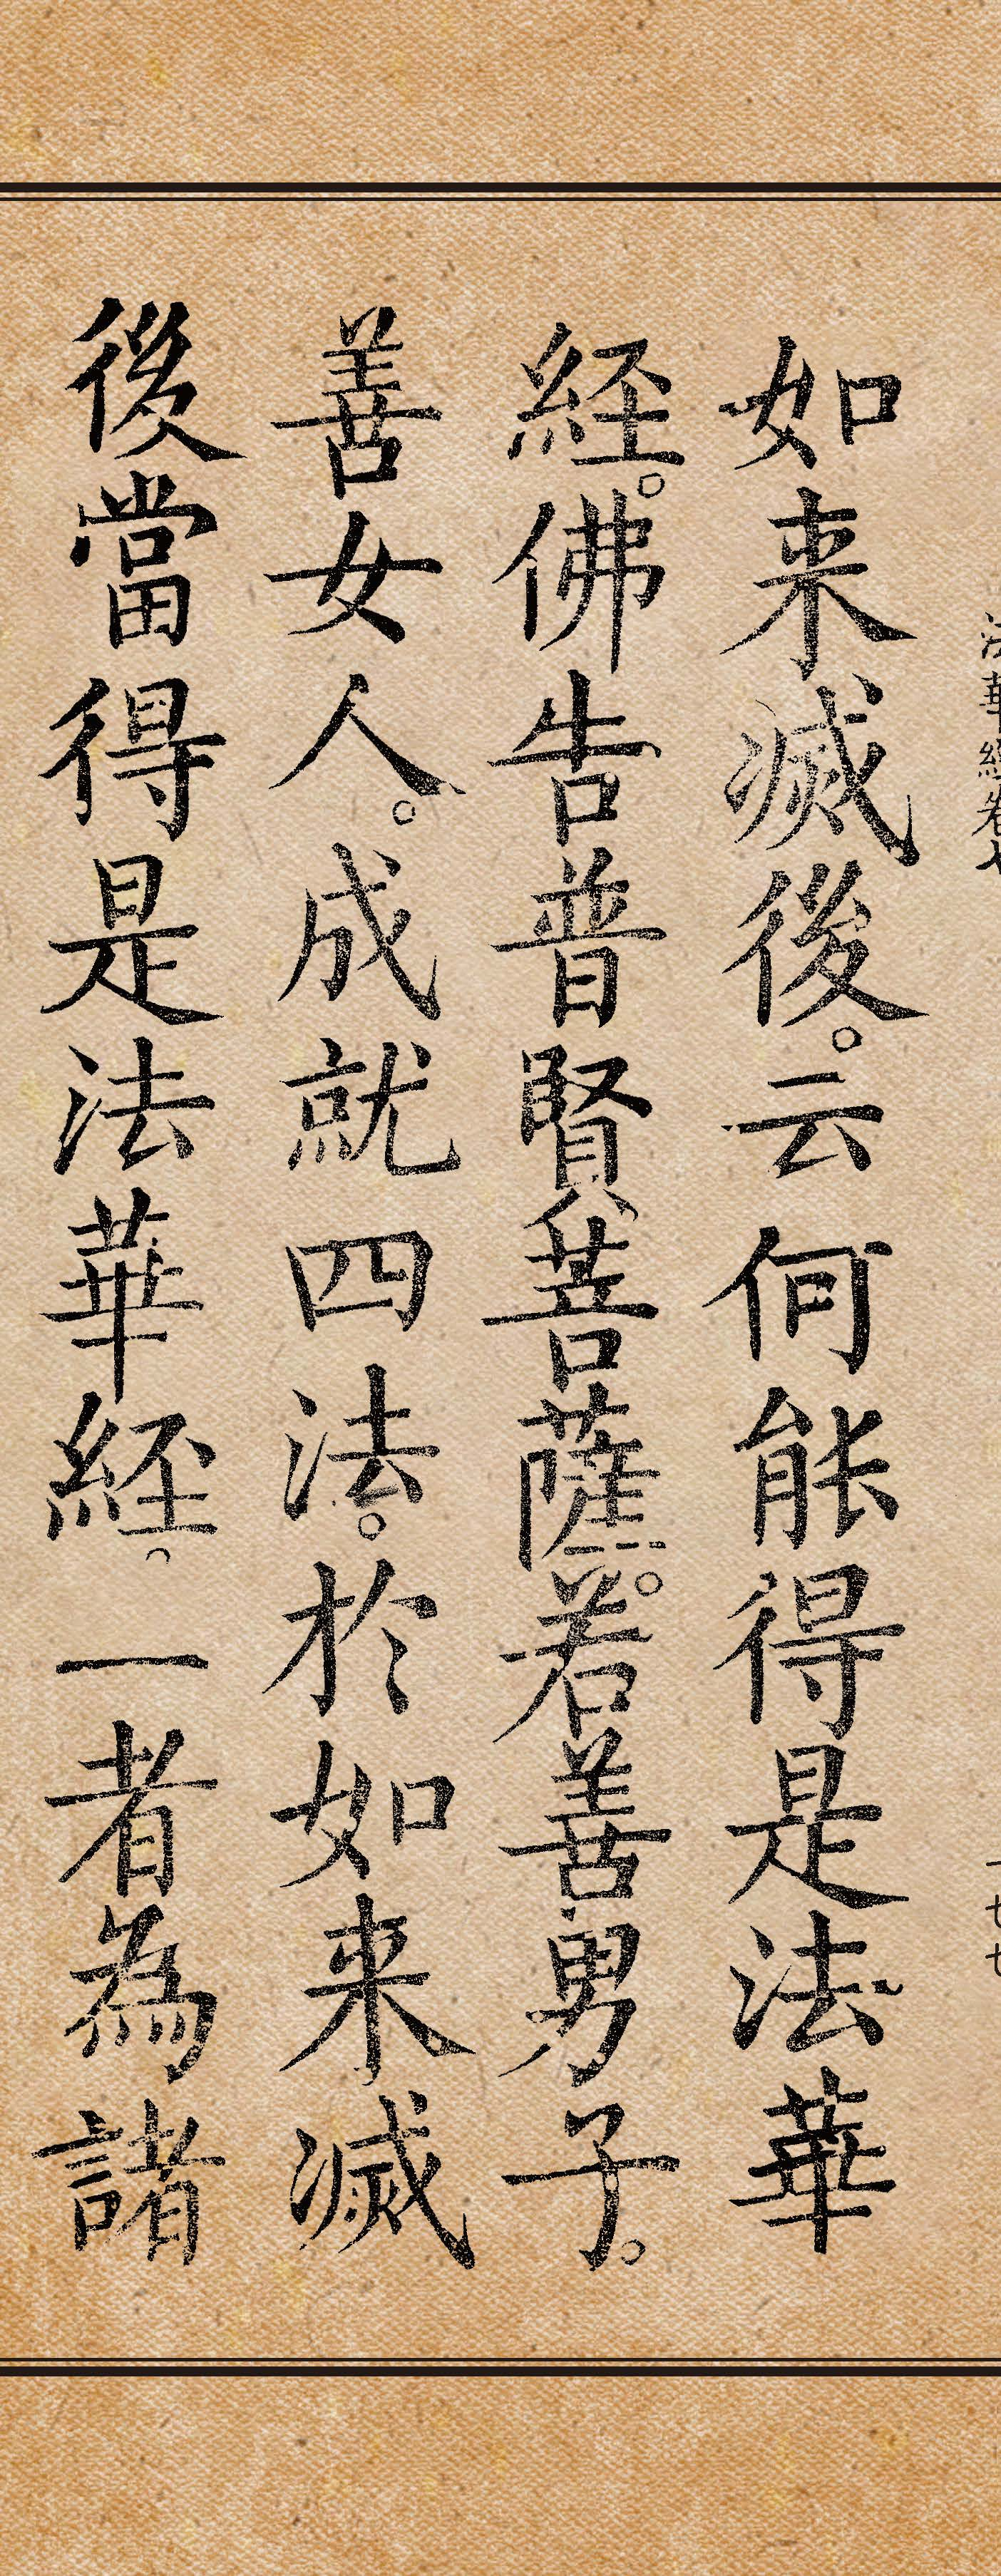 法華經卷七
一七七
如来滅後。云何能得是法華
経。佛告普賢菩薩。若善男子。
善女人。成就四法。於如来滅
後當得是法華経。一者為諸